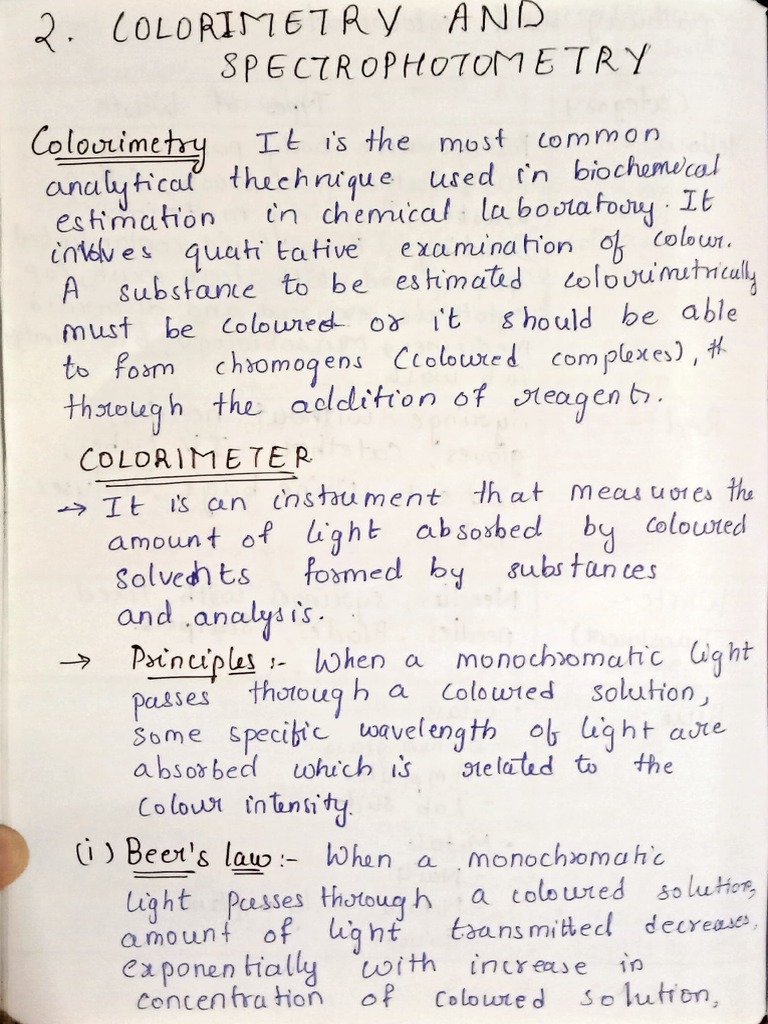 2. COLORIMETRY AND
SPECTROPHOTOMETRY
Colourimetry It is the most common
analytical thechnique used in biochemical
estimation in chemical laboratory. It
involves quatitative examination of colour.
A substance to be estimated colourimetrically
must be coloured or it should be able
to form chromogens (coloured complexes), th
through the addition of reagents.
COLORIMETER
→ It is an instrument that measures the
amount of light absorbed by coloured
solvents formed by substances
and analysis.
→ Principles :- When a monochromatic light
passes through a coloured solution,
some specific wavelength of light are
absorbed which is related to the
colour intensity.
(i) Beer's law :- When a monochromatic
light passes through a coloured solution,
amount of light transmitted decreases,
exponentially with increase in
concentration of coloured solution,